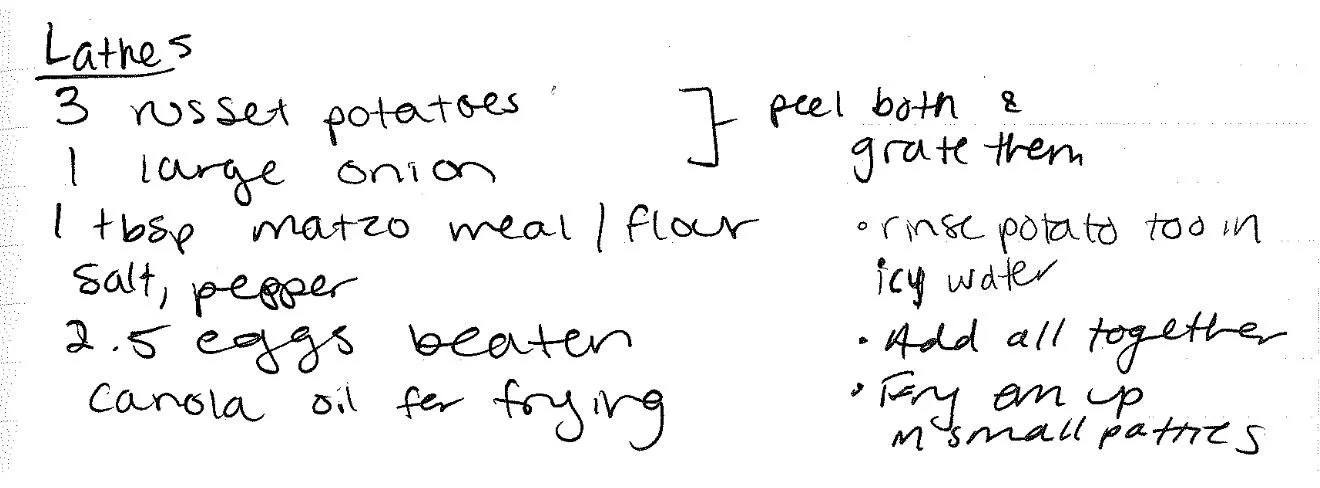 Lathes
3 russet potatoes
1 large onion
peel both &
grate them
1 tbsp matzo meal / flour
salt, pepper
2.5 eggs beaten
canola oil for frying
• rinse potato too in
icy water
• Add all together
• Fry em up
in small patties